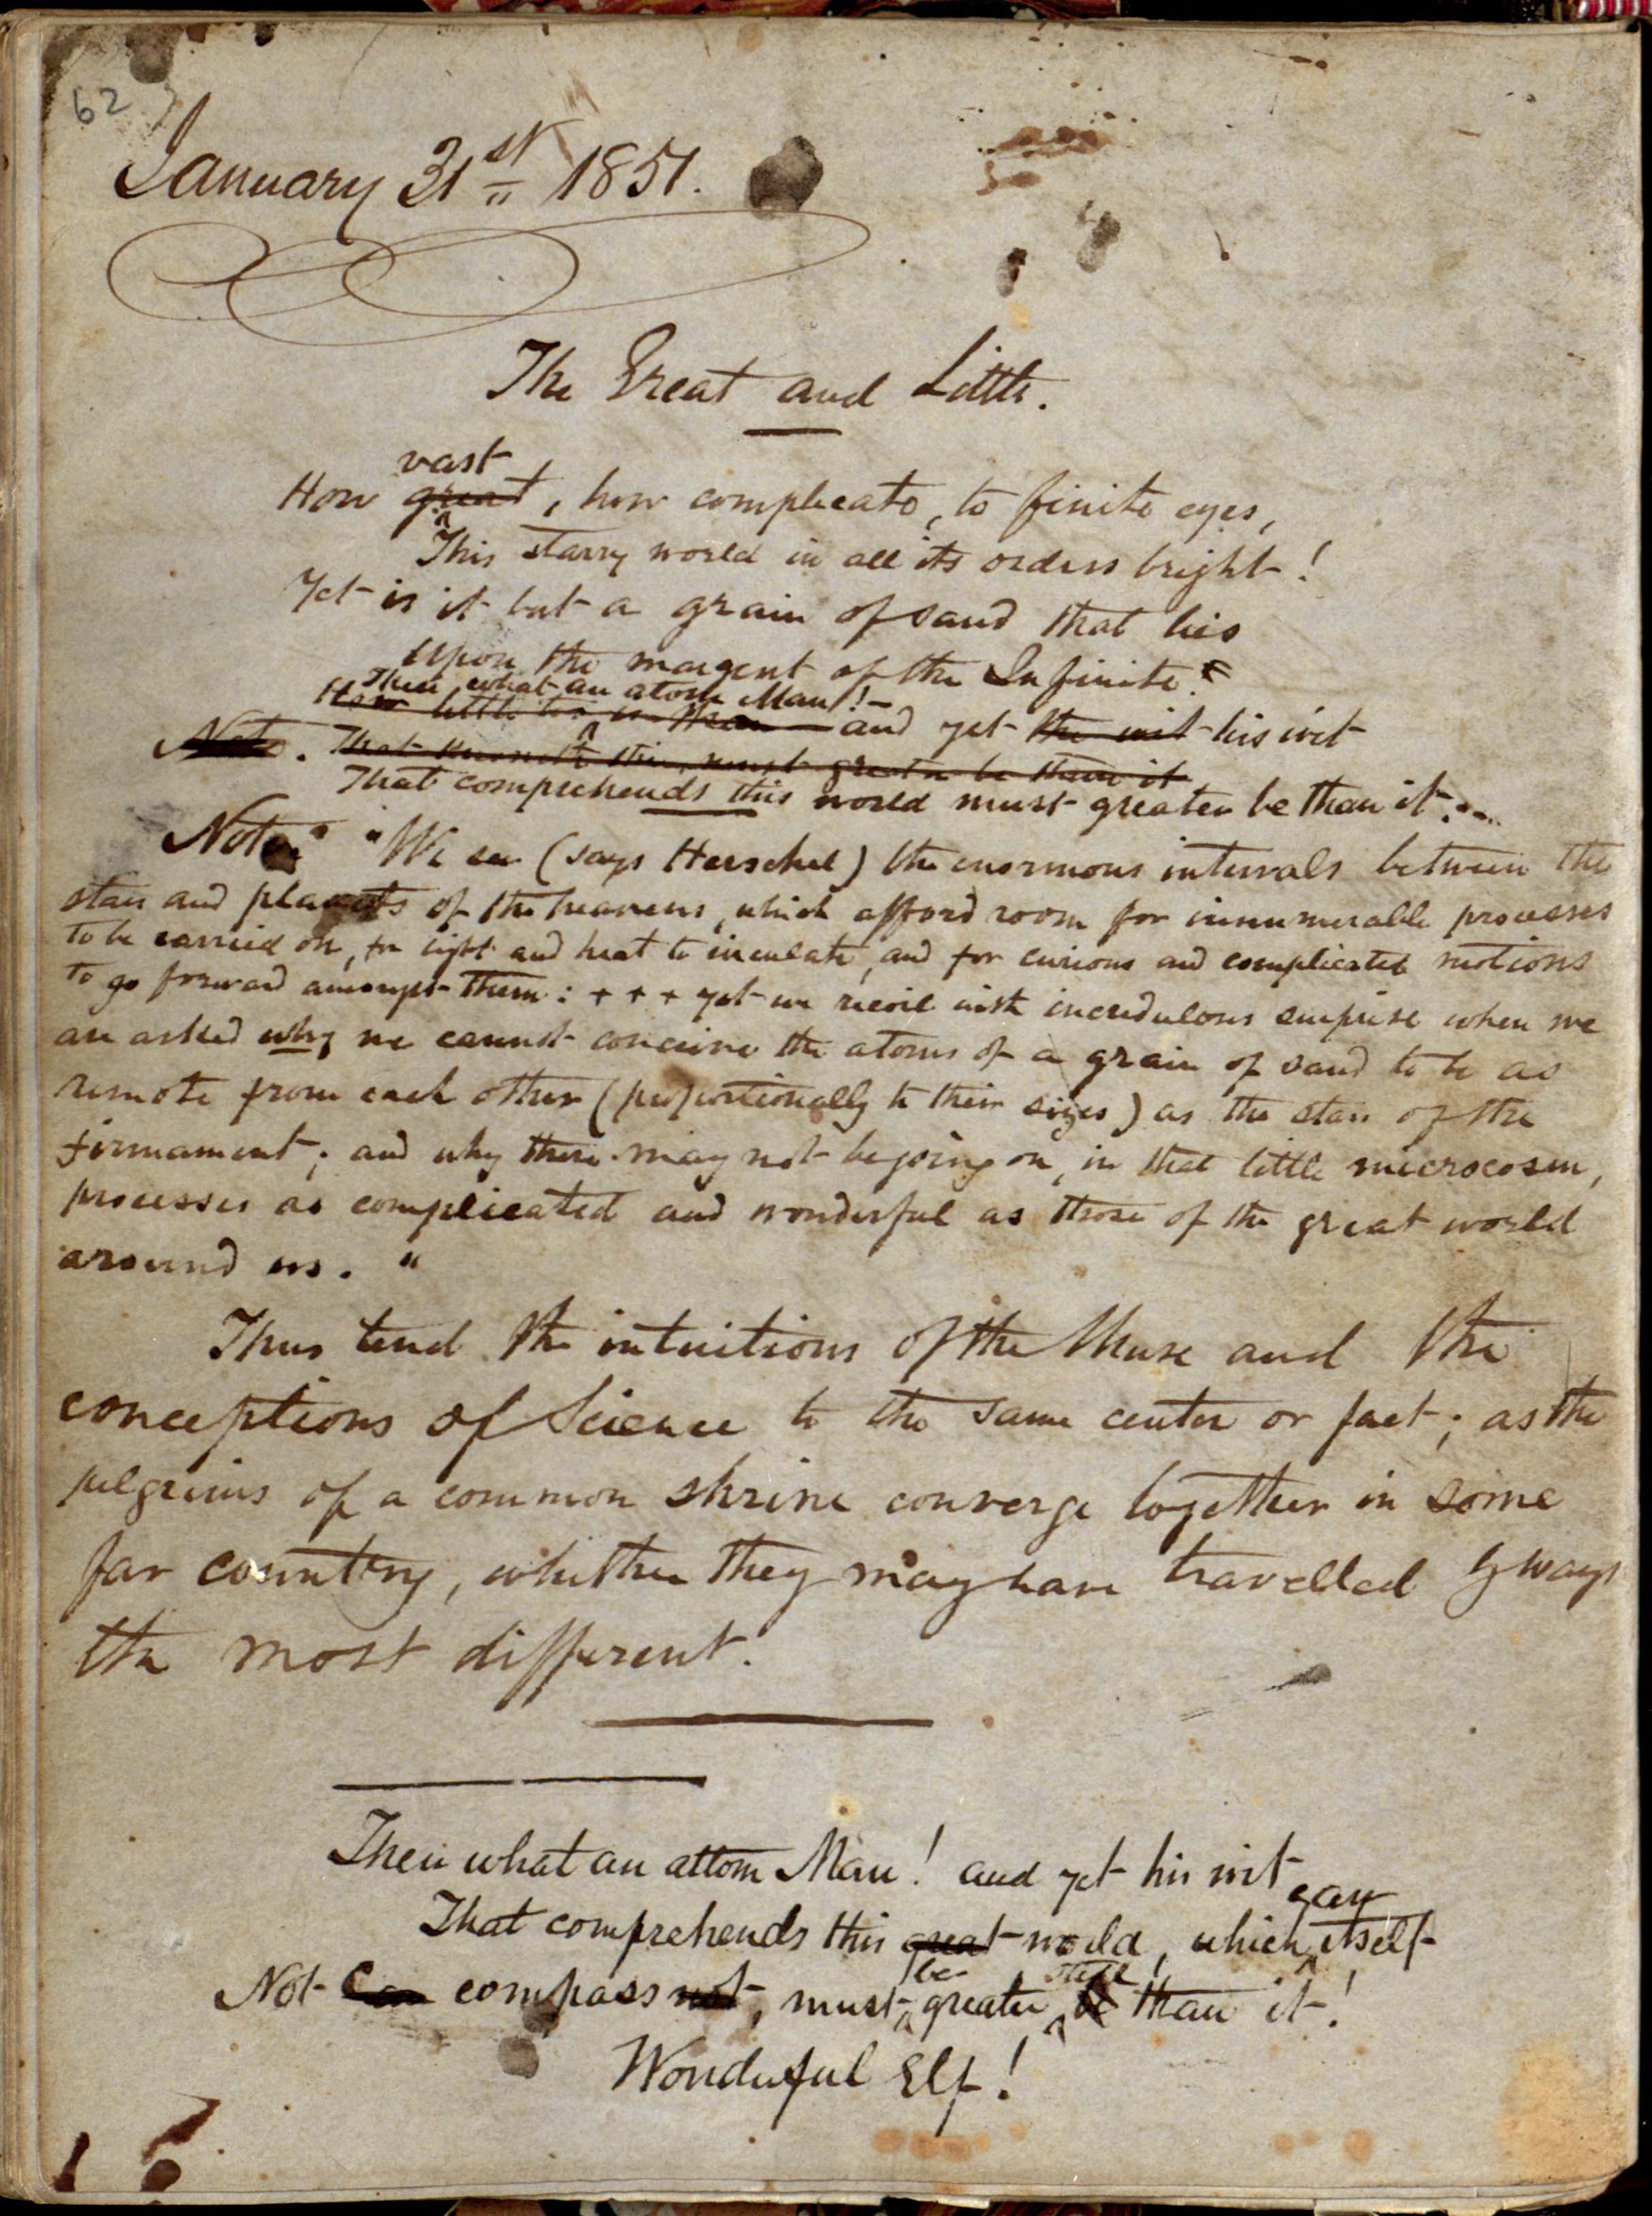 62
January 31st 1851.
The Great and Little.
vast
How great, how complicate, to finite eyes,
This starry world in all its orders bright!
Yet is it but a grain of sand that lies
Upon the margent of the Infinite.*
Then what an atom Man!-
How little too is Man and yet the wit his wit
Note. That knoweth this, must greater be than it
That comprehends this world must greater be than it.
Note* "We see (says Herschel) the enormous intervals between the
stars and planets of the heavens, which afford room for innumerable processes
to be carried on, for light and heat to circulate, and for curious and complicated motions
to go forward amongst them: + + + yet we recoil with incredulous surprise when we
are asked why we cannot conceive the atoms of a grain of sand to be as
remote from each other (proportionally to their sizes) as the stars of the
firmament; and why there may not be going on, in that little microcosm,
processes as complicated and wonderful as those of the great world
around us. "
Thus tend the intuitions of the Muse and the
conceptions of Science to the same center or fact; as the
pilgrims of a common shrine converge together in some
far country, whither they may have travelled by ways
the most different.
Then what an attom Man! and yet his wit
can
That comprehends this great world, which itself
be still
Not Can compass not, must greater be than it!
Wonderful Elf!